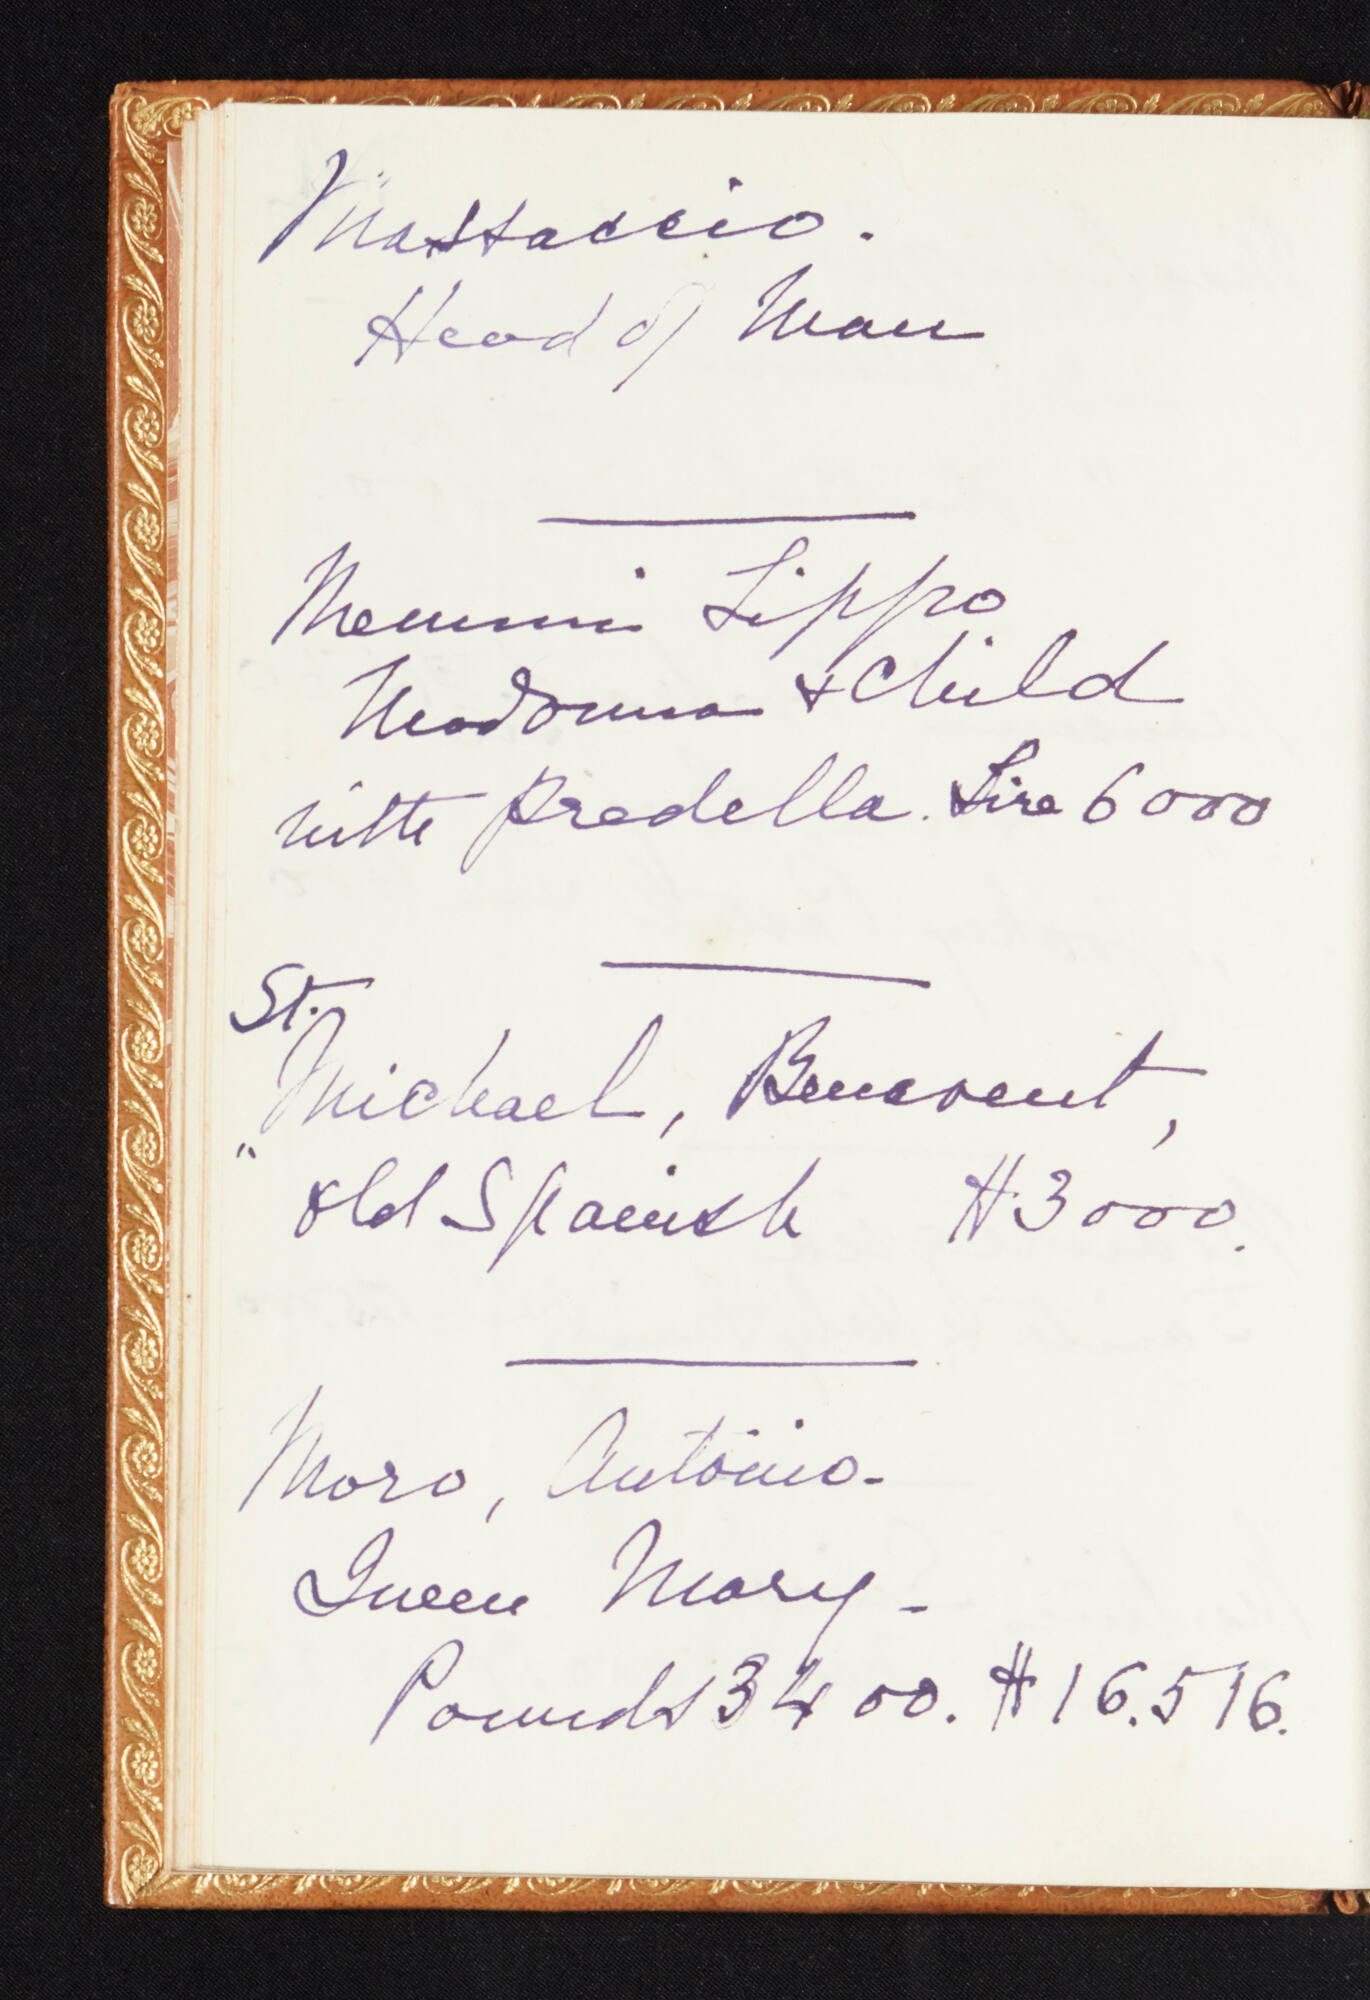 Massaccio.
Head of Man
Memmi Lippo
Madonna & Child
with predella. Lire 6000
St.
Michael, Benavent,
" old Spanish $3000.
Moro, Antonio-
Queen Mary-
Pounds 3400. $16.516.